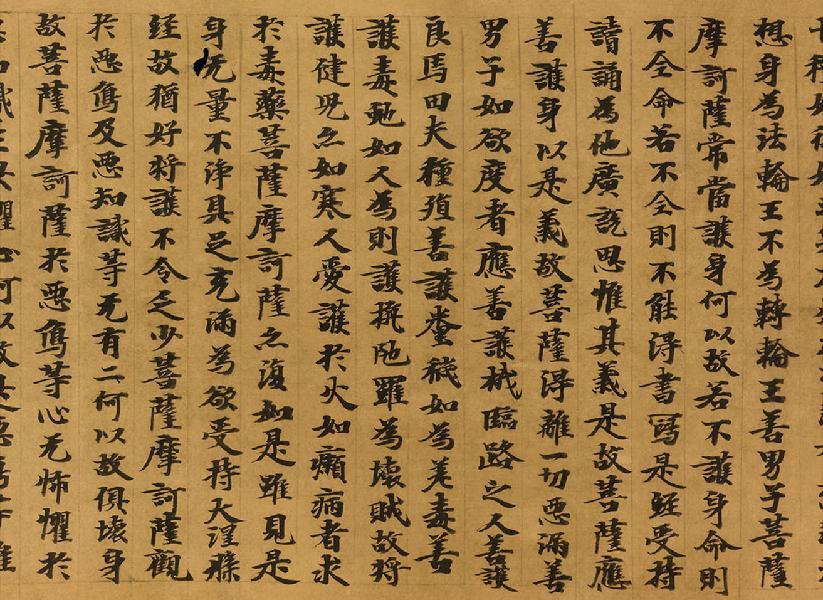 想身為法輪王不為轉輪王善男子菩薩
摩訶薩常當護身何以故若不護身命則
不全命若不全則不能得書寫是經受持
讀誦為他廣說思惟其義是故菩薩應
善護身以是義故菩薩得離一切惡漏善
男子如欲度者應善護栰臨路之人善護
良馬田夫種殖善護糞穢如為差毒善
護毒虵如人為則護旃陀羅為壞賊故將
護健兒亦如寒人愛護於火如癩病者求
於毒藥菩薩摩訶薩亦復如是雖見是
身无量不淨具足充滿為欲受持大涅槃
經故猶好將護不令乏少菩薩摩訶薩觀
於惡象及惡知識等无有二何以故俱壞身
故菩薩摩訶薩於惡象等心无怖懼於
知識生畏懼心何以故是惡象等唯